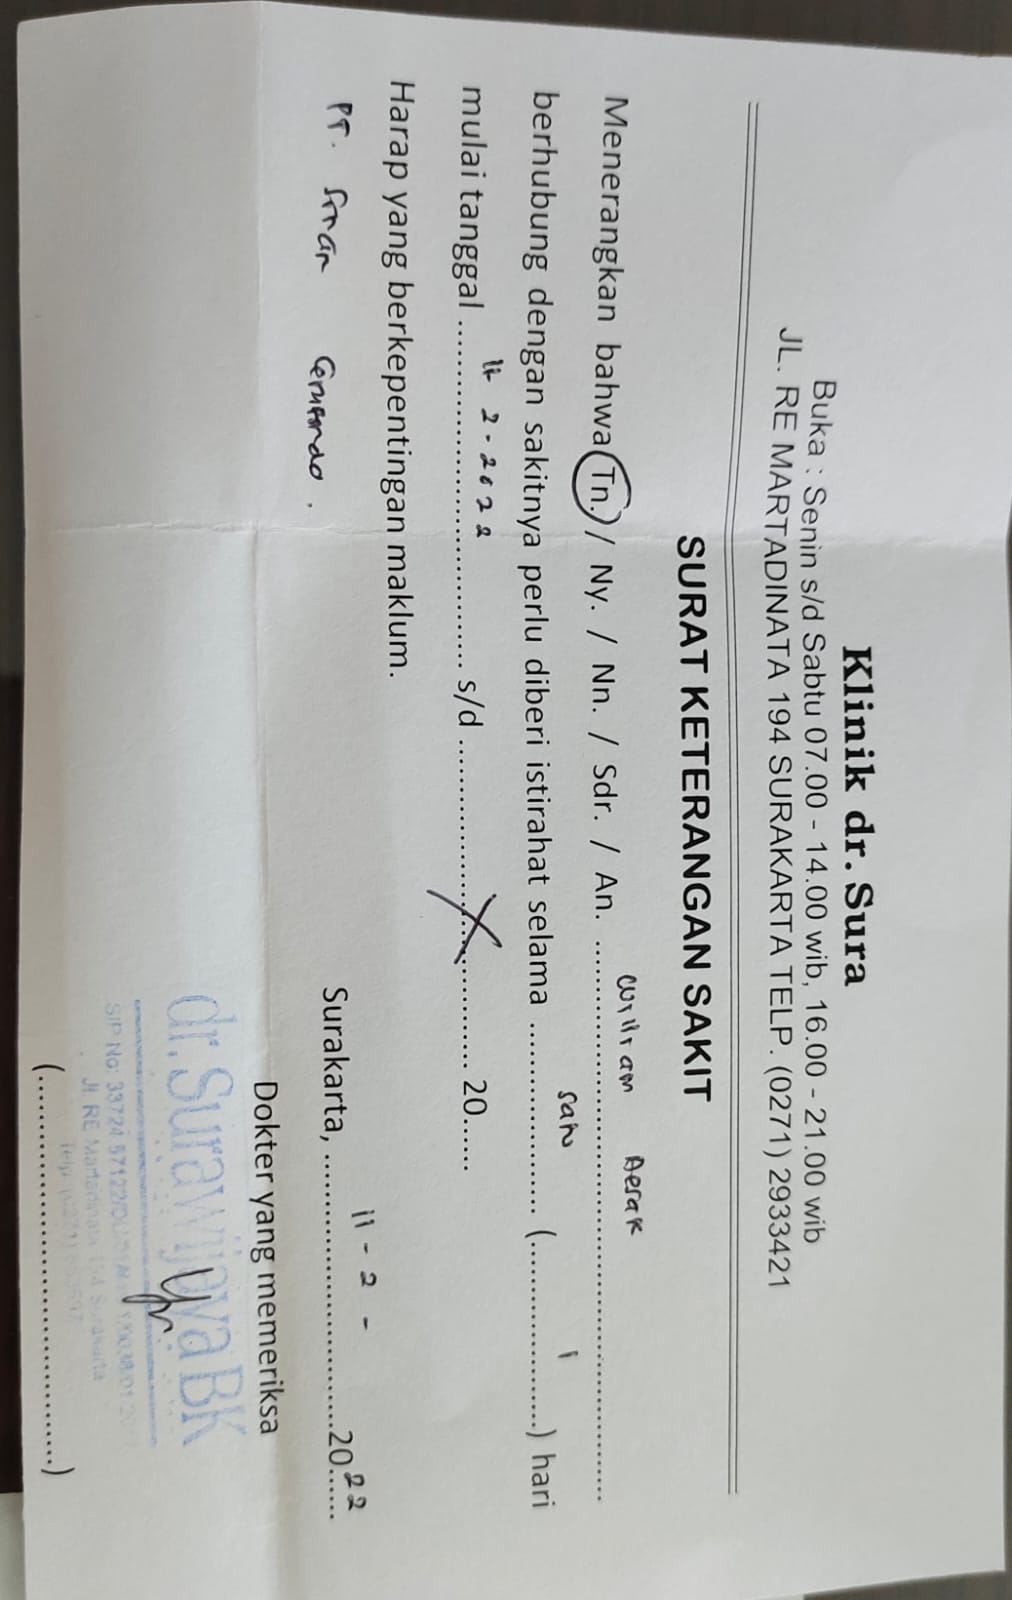 Klinik dr. Sura
Buka : Senin s/d Sabtu 07.00 - 14.00 wib, 16.00 - 21.00 wib
JL. RE MARTADINATA 194 SURAKARTA TELP. (0271) 2933421
SURAT KETERANGAN SAKIT
Menerangkan bahwa Tn. / Ny. / Nn. / Sdr. / An. William
berhubung dengan sakitnya perlu diberi istirahat selama satu (1) hari
mulai tanggal 11 2-2022 s/d .................... 20......
Harap yang berkepentingan maklum.
PT.
Surakarta, 11 - 2 - 2022
Dokter yang memeriksa
dr. Surawijaya BK
SIP No: 33724 57122/
Jl. RE Martadinata 194 Surakarta
Telp. (0271)
(........................................)